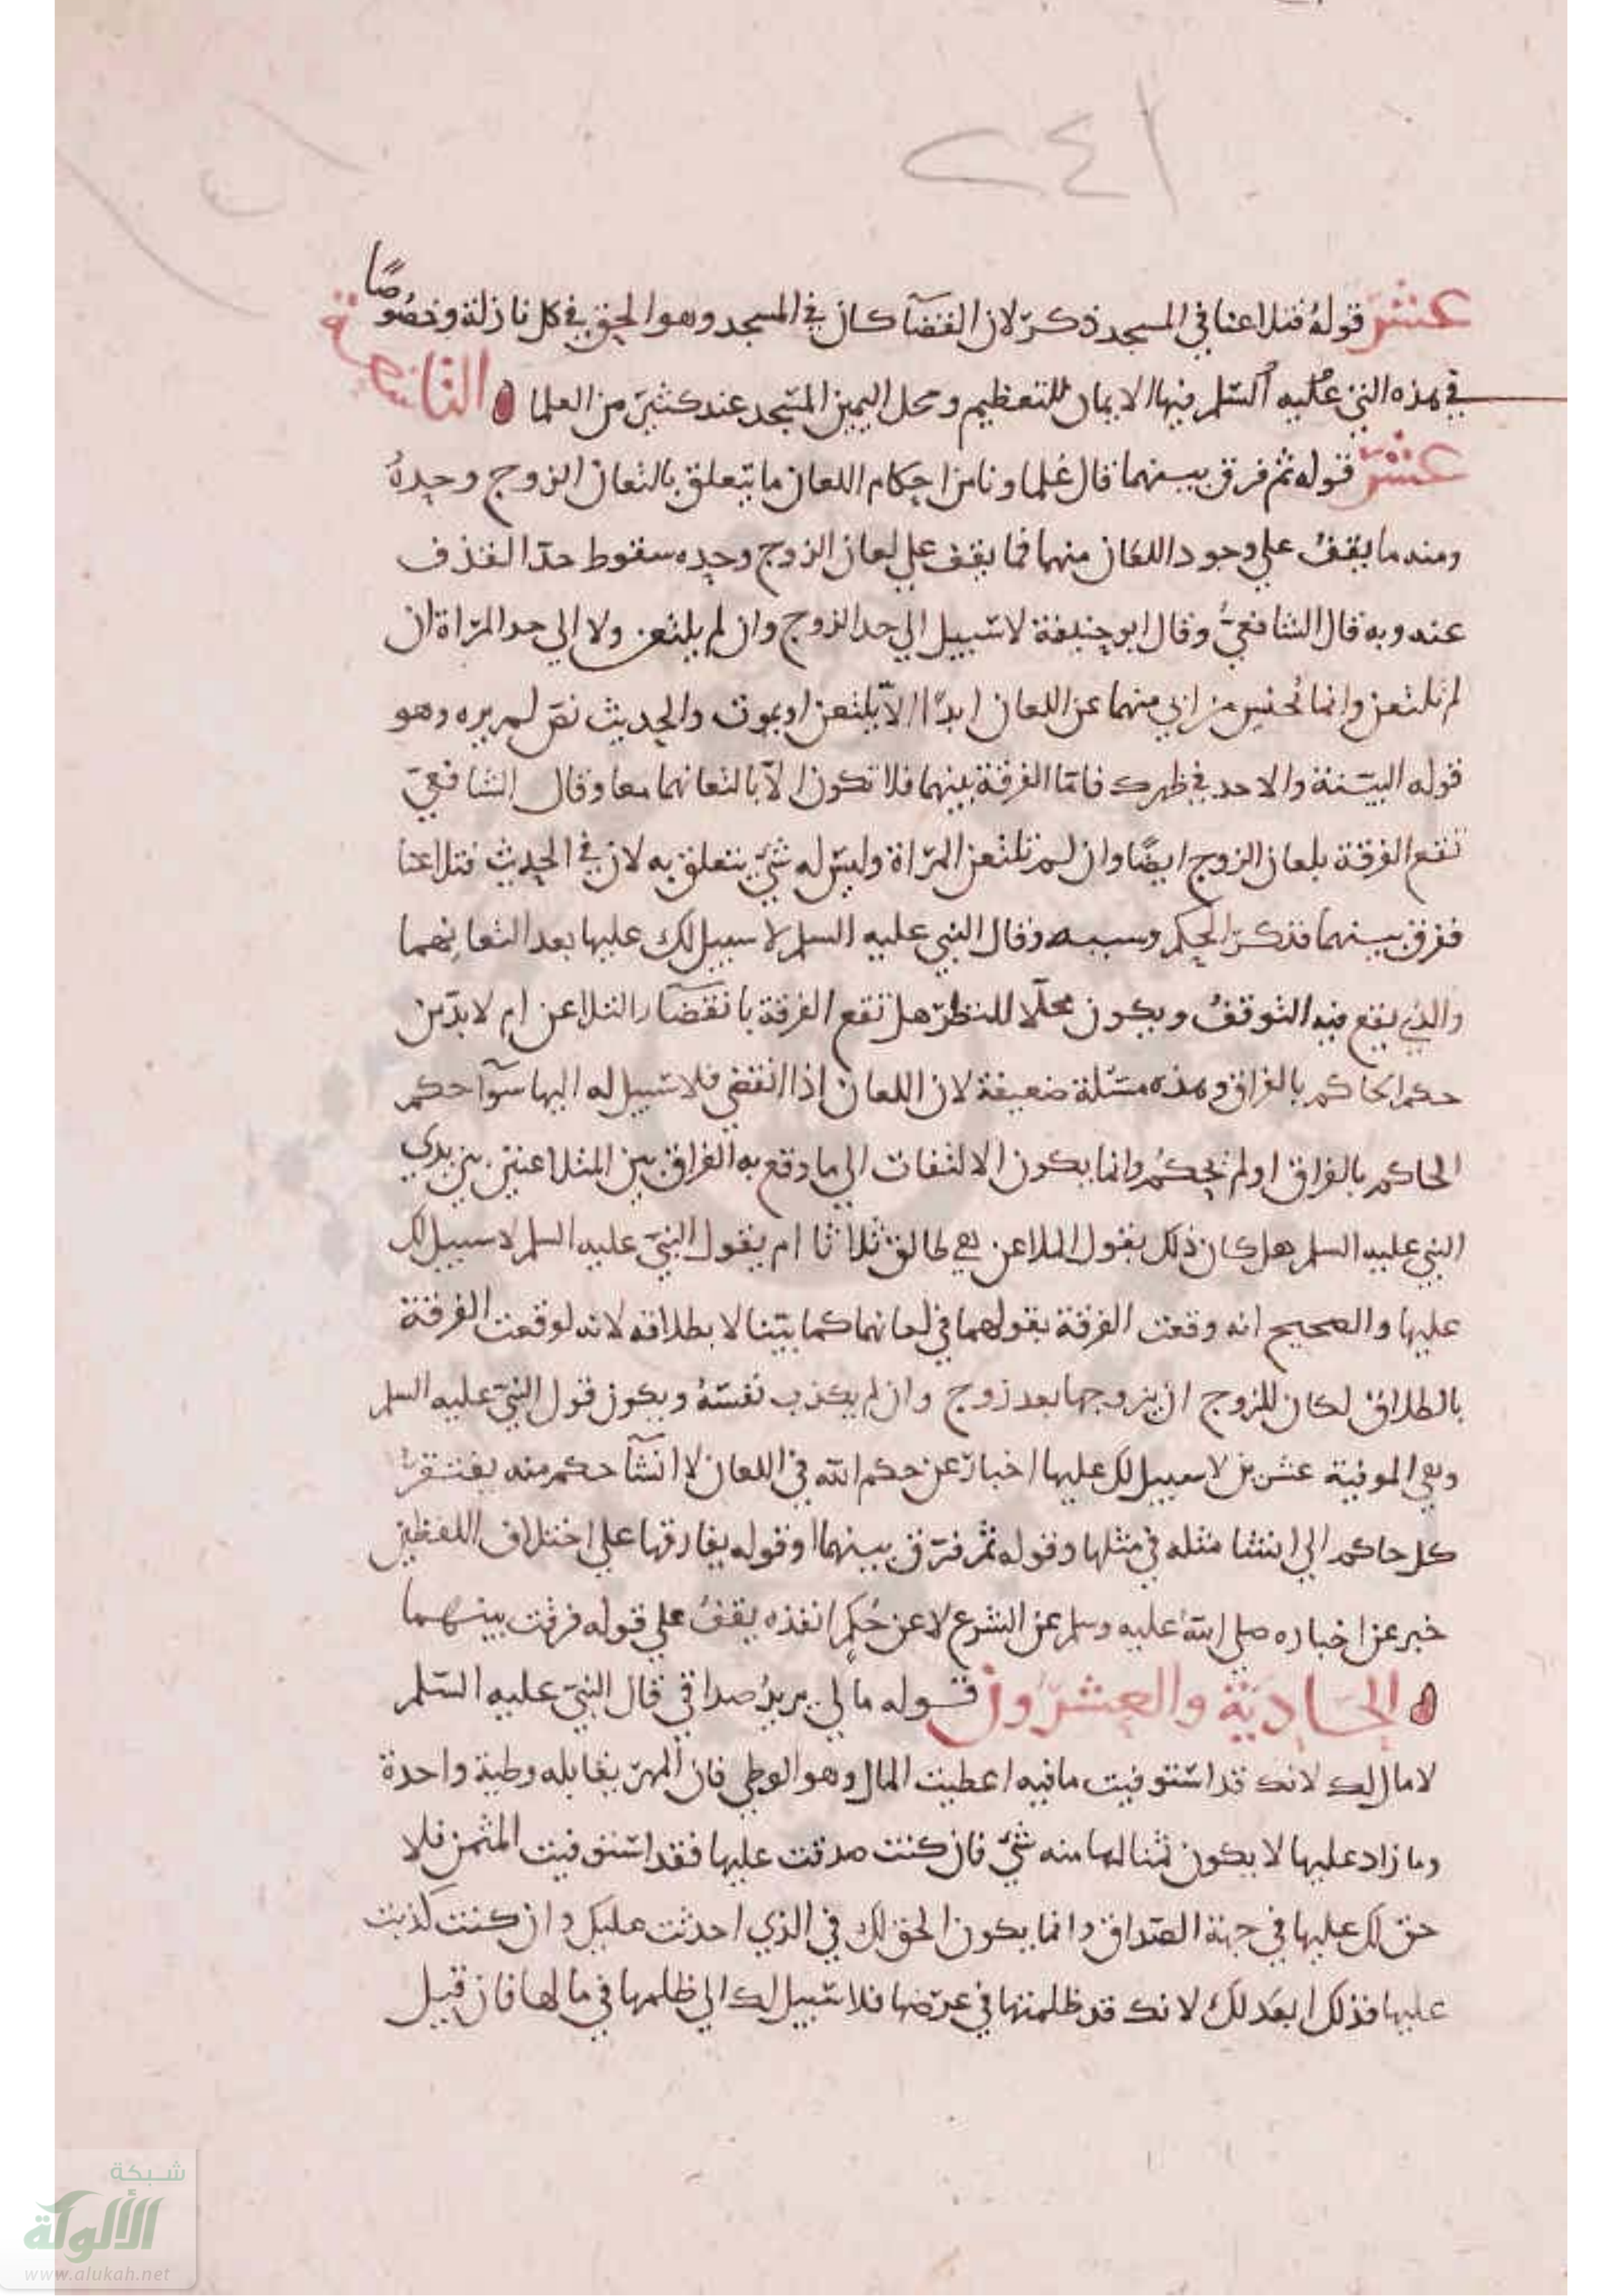 ٢٤١
عشر قوله فتلاعنا في المسجد ذكر لان القضآ كان في المسجد وهو الحق في كل نازلة وخصوصًا
في هذه التي عليه السلم فيها الايمان للتعظيم ومحل اليمين المسجد عند كثير من العلما الثامنة
عشر قوله ثم فرق بينهما قال علماونا من احكام اللعان ما يتعلق بالتعان الزوج وحده
ومنه ما يقف على وجود اللعان منهما فما يقف على لعان الزوج وحده سقوط حد القذف
عنه وبه قال الشافعي وقال ابو حنيفة لا سبيل الى حد الزوج وان لم يلتعن ولا الى حد المراة ان
لم تلتعن وانما يحبس من ابى منهما عن اللعان ابدًا الا يلتعن او يموت والحديث نص لم يره وهو
قوله البينة والا حد في ظهرك فاما الفرقة بينهما فلا تكون الا بالتعانهما معا وقال الشافعي
تقع الفرقة بلعان الزوج ايضًا وان لم تلتعن المراة وليس له شي يتعلق به لان في الحديث فتلاعنا
ففرق بينهما فذكر الحكم وسببه وقال النبي عليه السلم لا سبيل لك عليها بعد التعانهما
والذي يقع فيه التوقف ويكون محلا للنظر هل تقع الفرقة بانقضآ التلاعن ام لا بد من
حكم الحاكم بالفراق وهذه مسئلة ضعيفة لان اللعان اذا انقضى فلا سبيل له اليها سوآ حكم
الحاكم بالفراق او لم يحكم وانما يكون الالتفات الى ما وقع به الفراق بين المتلاعنين بين يدي
النبي عليه السلم هل كان ذلك بقول الملاعن هي طالق ثلاثا ام بقول النبي عليه السلم لا سبيل لك
عليها والصحيح انه وقعت الفرقة بقولهما في لعانهما كما بينا لا بطلاقه لانه لو وقعت الفرقة
بالطلاق لكان للزوج ان يتزوجها بعد زوج وان لم يكذب نفسه ويكون قول النبي عليه السلم
وهي الموفية عشرين لا سبيل لك عليها اخبار عن حكم الله في اللعان لا انشآ حكم منه يفتقر
كل حاكم الى انشا مثله في مثلها وقوله ثم فرق بينهما او قوله يفارقها على اختلاف اللفظين
خبر عن اخباره صلى الله عليه وسلم عن الشرع لا عن حكم انفذه يقف على قوله فرقت بينهما
الحادية والعشرون قوله مالي يريد صداقي قال النبي عليه السلم
لا مال لك لانك قد استوفيت ما فيه اعطيت المال وهو الوطي فان المهر يقابله وطية واحدة
وما زاد عليها لا يكون ثمنا لها منه شي فان كنت صدقت عليها فقد استوفيت المثمن فلا
حق لك عليها في جهة الصداق وانما يكون الحق لك في الذي احدثت عليك وان كنت كذبت
عليها فذلك ابعد لك لانك قد ظلمتها في عرضها فلا سبيل لك الى ظلمها في مالها فان قيل
شبكة
الألوكة
www.alukah.net